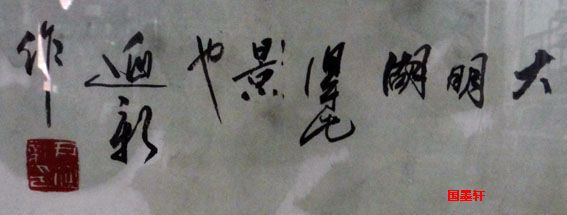 大明湖景也新作
国墨轩